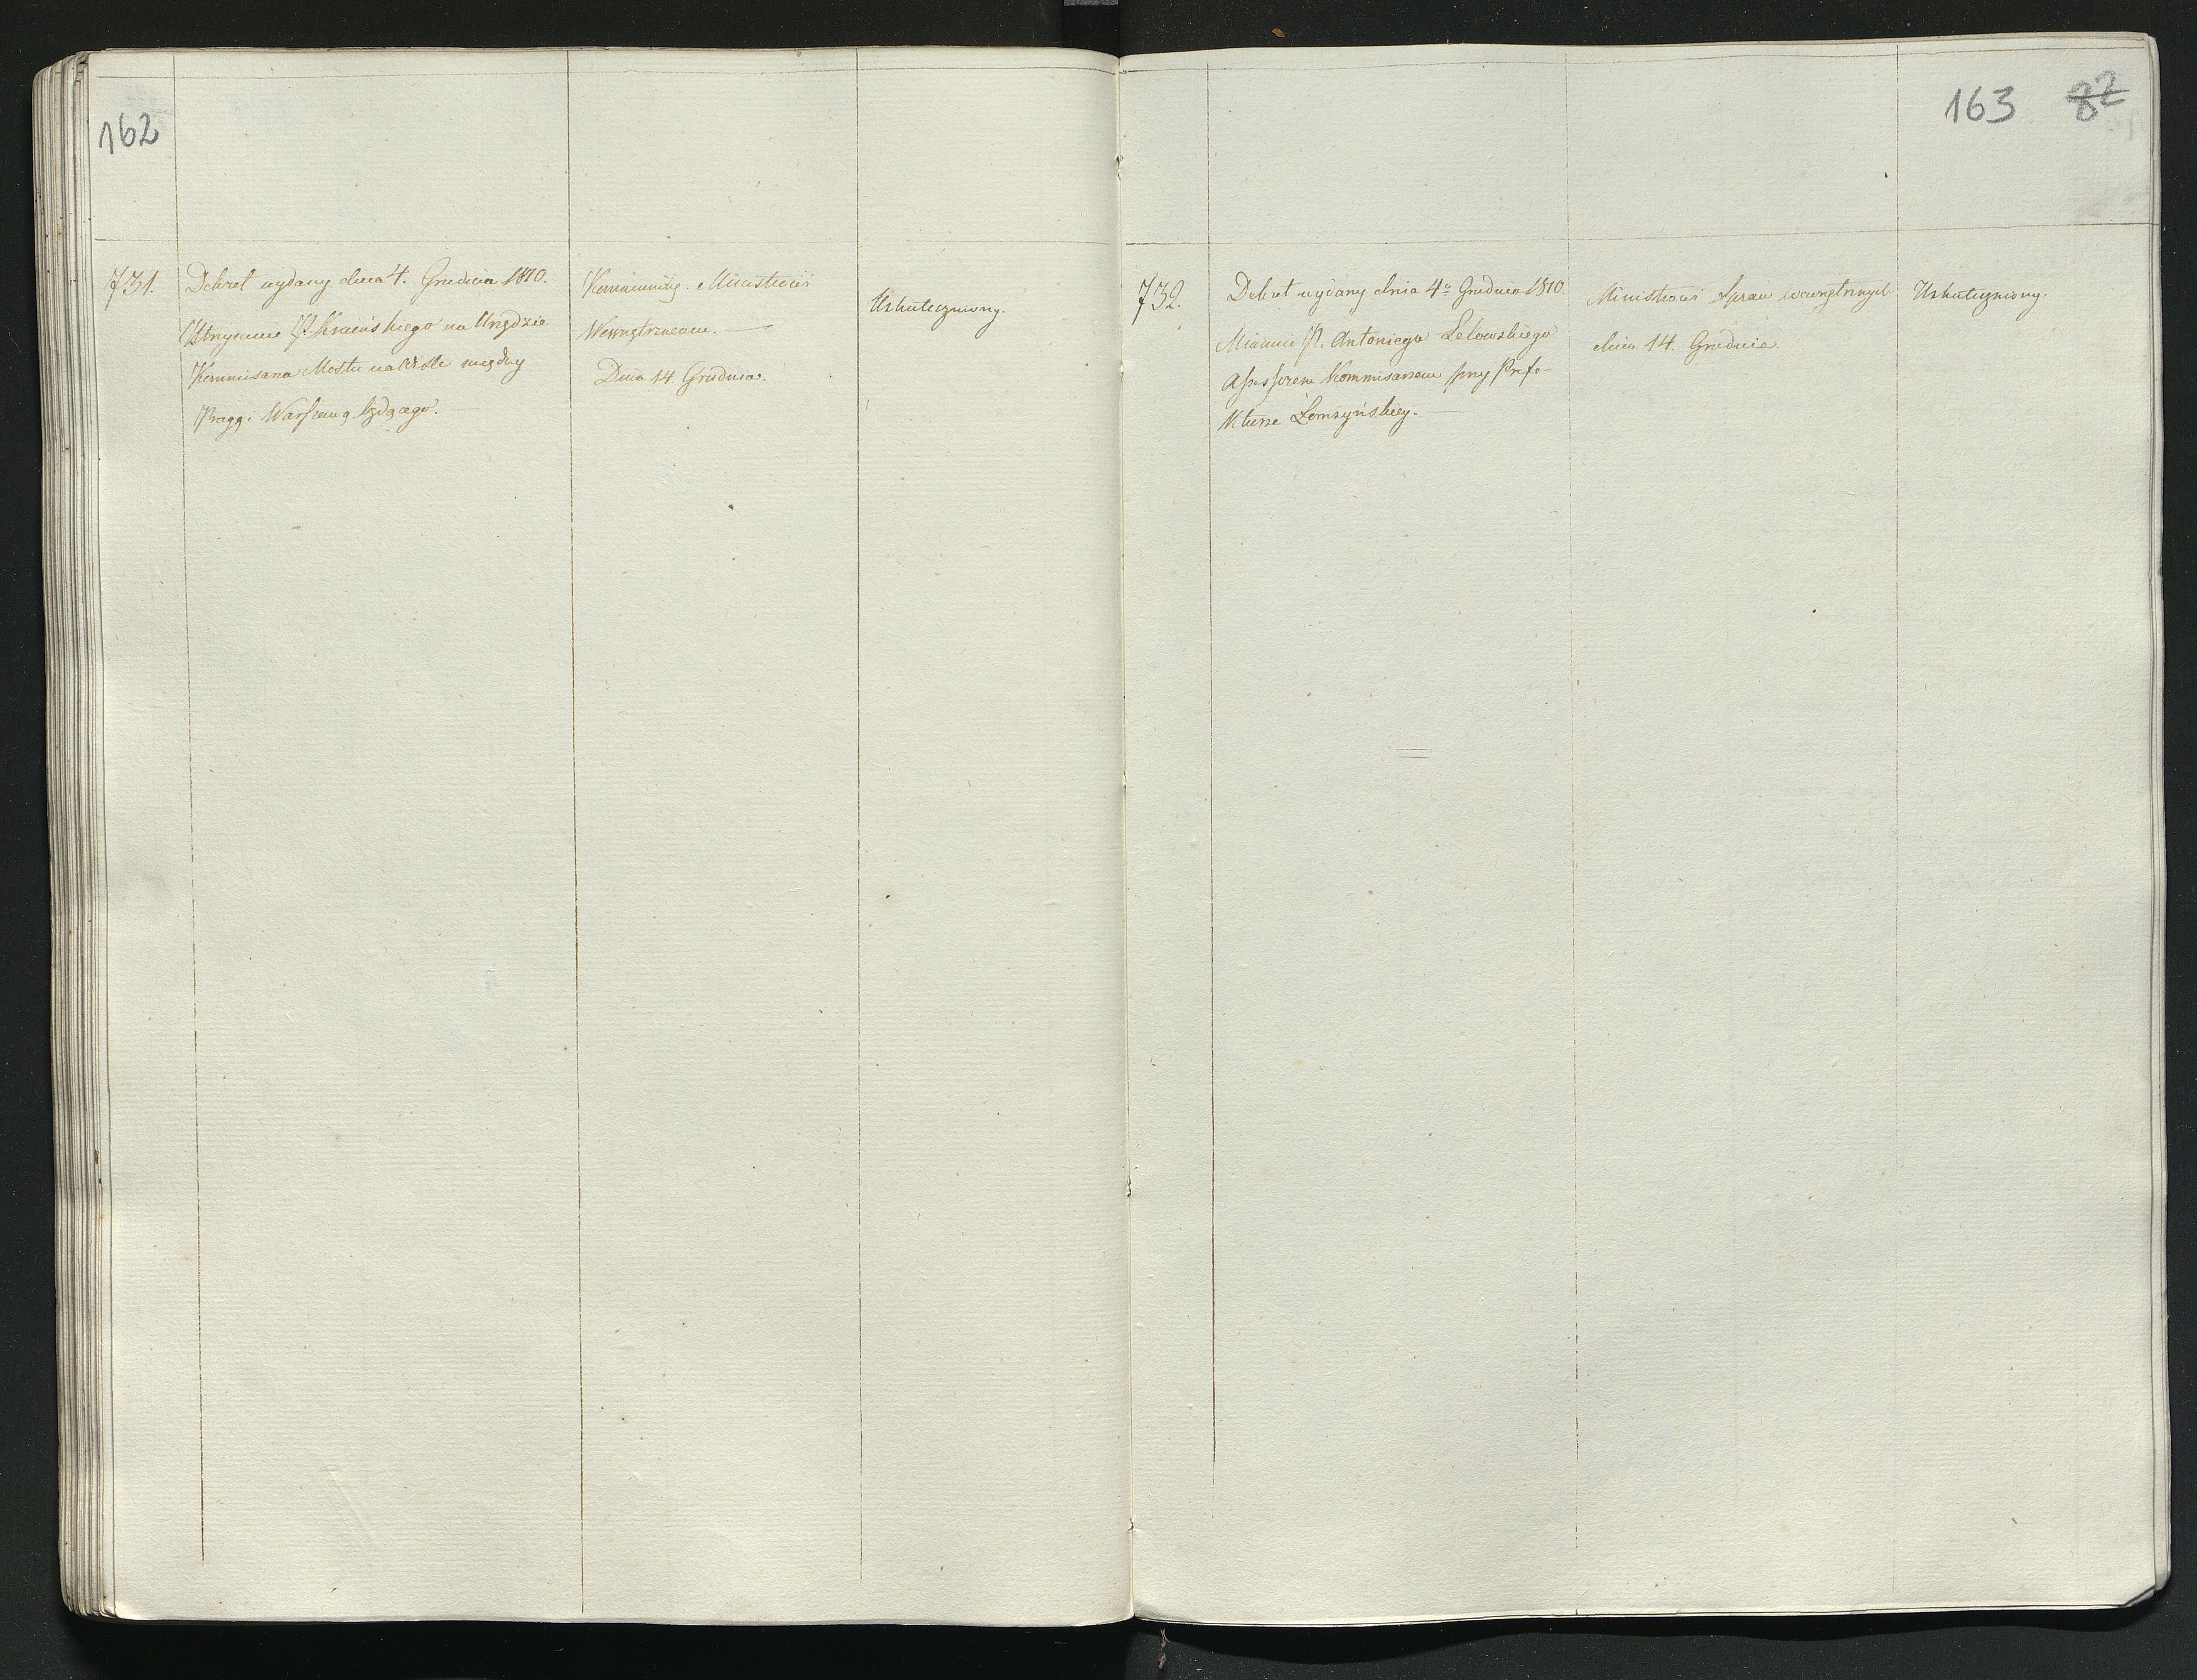 162
731.
Dekret wydany dnia 4. Grudnia 1810.
Utrzymuie P. Kraińskiego na Urzędzie
Kommisarza Mostu na Wiśle między
Pragą, Warszawą będącego. —
Ministrowi
Wewnętrznemu. —
Dnia 14. Grudnia.
Uskuteczniony.
163 82
732.
Dekret wydany dnia 4º Grudnia 1810
Mianuie P. Antoniego Lelowskiego
Assessorem Kommisarzem przy Prefe-
kturze Łomżyńskiey. —
Ministrowi Spraw wewnętrznych
dnia 14. Grudnia.
Uskuteczniony.